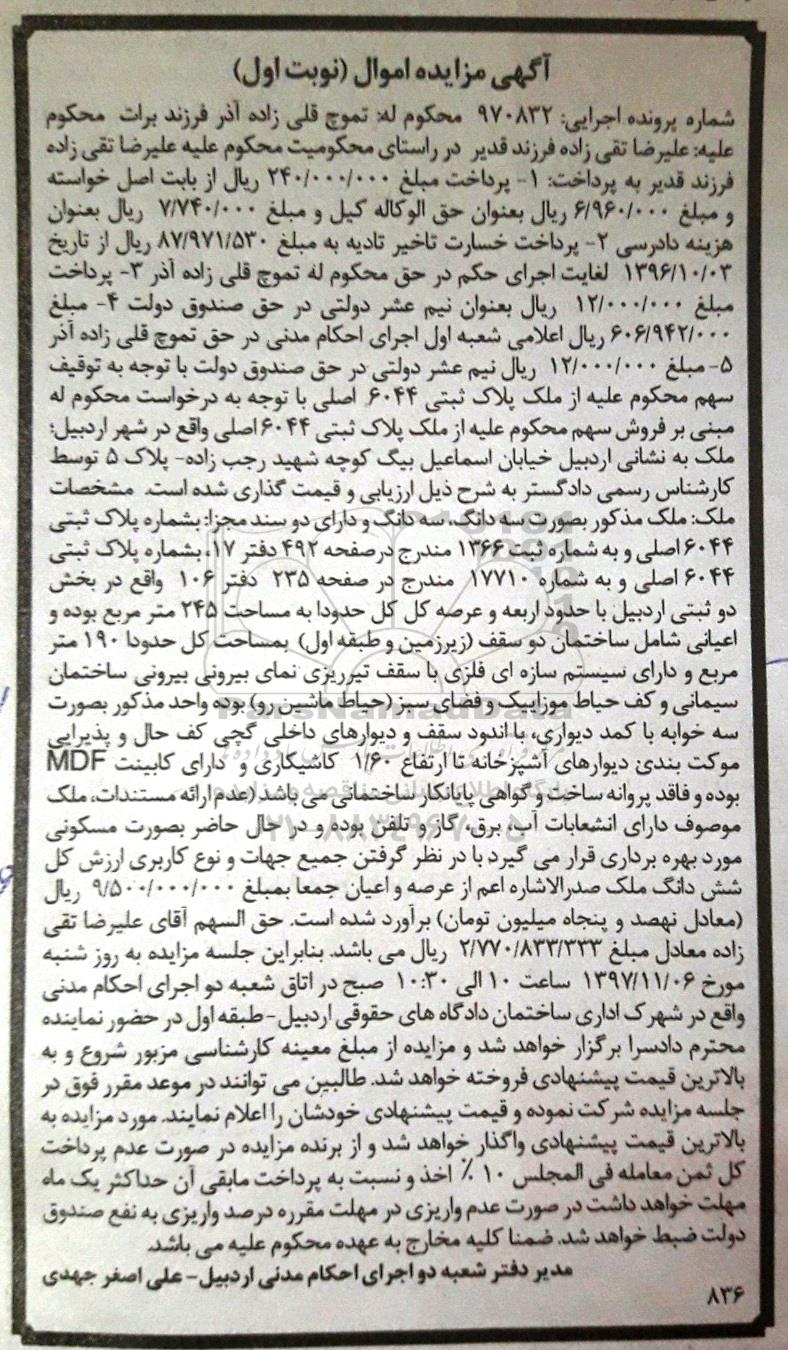 آگهی مزایده اموال (نوبت اول)
شماره پرونده اجرایی: ۹۷۰۸۳۲ محکوم له: تموچ قلی زاده آذر فرزند برات محکوم
علیه: علیرضا تقی زاده فرزند قدیر در راستای محکومیت محکوم علیه علیرضا تقی زاده
فرزند قدیر به پرداخت: ۱- پرداخت مبلغ ۲۴۰/۰۰۰/۰۰۰ ریال از بابت اصل خواسته
و مبلغ ۶/۹۶۰/۰۰۰ ریال بعنوان حق الوکاله کیل و مبلغ ۷/۷۴۰/۰۰۰ ریال بعنوان
هزینه دادرسی ۲- پرداخت خسارت تاخیر تادیه به مبلغ ۸۷/۹۷۱/۵۳۰ ریال از تاریخ
۱۳۹۶/۱۰/۰۳ لغایت اجرای حکم در حق محکوم له تموچ قلی زاده آذر ۳- پرداخت
مبلغ ۱۲/۰۰۰/۰۰۰ ریال بعنوان نیم عشر دولتی در حق صندوق دولت ۴- مبلغ
۶۰۶/۹۴۲/۰۰۰ ریال اعلامی شعبه اول اجرای احکام مدنی در حق تموچ قلی زاده آذر
۵- مبلغ ۱۲/۰۰۰/۰۰۰ ریال نیم عشر دولتی در حق صندوق دولت با توجه به توقیف
سهم محکوم علیه از ملک پلاک ثبتی ۶۰۴۴ اصلی با توجه به درخواست محکوم له
مبنی بر فروش سهم محکوم علیه از ملک پلاک ثبتی ۶۰۴۴ اصلی واقع در شهر اردبیل؛
ملک به نشانی اردبیل خیابان اسماعیل بیگ کوچه شهید رجب زاده- پلاک ۵ توسط
کارشناس رسمی دادگستر به شرح ذیل ارزیابی و قیمت گذاری شده است. مشخصات
ملک: ملک مذکور بصورت سه دانگ، سه دانگ و دارای دو سند مجزا: بشماره پلاک ثبتی
۶۰۴۴ اصلی و به شماره ثبت ۱۳۶۶ مندرج در صفحه ۴۹۲ دفتر ۱۷، بشماره پلاک ثبتی
۶۰۴۴ اصلی و به شماره ۱۷۷۱۰ مندرج در صفحه ۲۳۵ دفتر ۱۰۶ واقع در بخش
دو ثبتی اردبیل با حدود اربعه و عرصه کل کل حدودا به مساحت ۲۴۵ متر مربع بوده و
اعیانی شامل ساختمان دو سقف (زیرزمین و طبقه اول) بمساحت کل حدودا ۱۹۰ متر
مربع و دارای سیستم سازه ای فلزی با سقف تیرریزی نمای بیرونی بیرونی ساختمان
سیمانی و کف حیاط موزاییک و فضای سبز (حیاط ماشین رو) بوده واحد مذکور بصورت
سه خوابه با کمد دیواری، با اندود سقف و دیوارهای داخلی گچی کف حال و پذیرایی
موکت بندی دیوارهای آشپزخانه تا ارتفاع ۱/۶۰ کاشیکاری و دارای کابینت MDF
بوده و فاقد پروانه ساخت و گواهی پایانکار ساختمانی می باشد (عدم ارائه مستندات، ملک
موصوف دارای انشعابات آب، برق، گاز و تلفن بوده و در حال حاضر بصورت مسکونی
مورد بهره برداری قرار می گیرد با در نظر گرفتن جمیع جهات و نوع کاربری ارزش کل
شش دانگ ملک صدرالاشاره اعم از عرصه و اعیان جمعا بمبلغ ۹/۵۰۰/۰۰۰/۰۰۰ ریال
(معادل نهصد و پنجاه میلیون تومان) برآورد شده است. حق السهم آقای علیرضا تقی
زاده معادل مبلغ ۲/۷۷۰/۸۳۳/۳۳۳ ریال می باشد. بنابراین جلسه مزایده به روز شنبه
مورخ ۱۳۹۷/۱۱/۰۶ ساعت ۱۰ الی ۱۰:۳۰ صبح در اتاق شعبه دو اجرای احکام مدنی
واقع در شهرک اداری ساختمان دادگاه های حقوقی اردبیل-طبقه اول در حضور نماینده
محترم دادسرا برگزار خواهد شد و مزایده از مبلغ معینه کارشناسی مزبور شروع و به
بالاترین قیمت پیشنهادی فروخته خواهد شد. طالبین می توانند در موعد مقرر فوق در
جلسه مزایده شرکت نموده و قیمت پیشنهادی خودشان را اعلام نمایند. مورد مزایده به
بالاترین قیمت پیشنهادی واگذار خواهد شد و از برنده مزایده در صورت عدم پرداخت
کل ثمن معامله فی المجلس ۱۰ ٪ اخذ و نسبت به پرداخت مابقی آن حداکثر یک ماه
مهلت خواهد داشت در صورت عدم واریزی در مهلت مقرره درصد واریزی به نفع صندوق
دولت ضبط خواهد شد. ضمنا کلیه مخارج به عهده محکوم علیه می باشد.
مدیر دفتر شعبه دو اجرای احکام مدنی اردبیل- علی اصغر جهدی
۸۳۶
ParsNamadData
۰۲۱-۸۸۳۴۹۶۷۰-۵